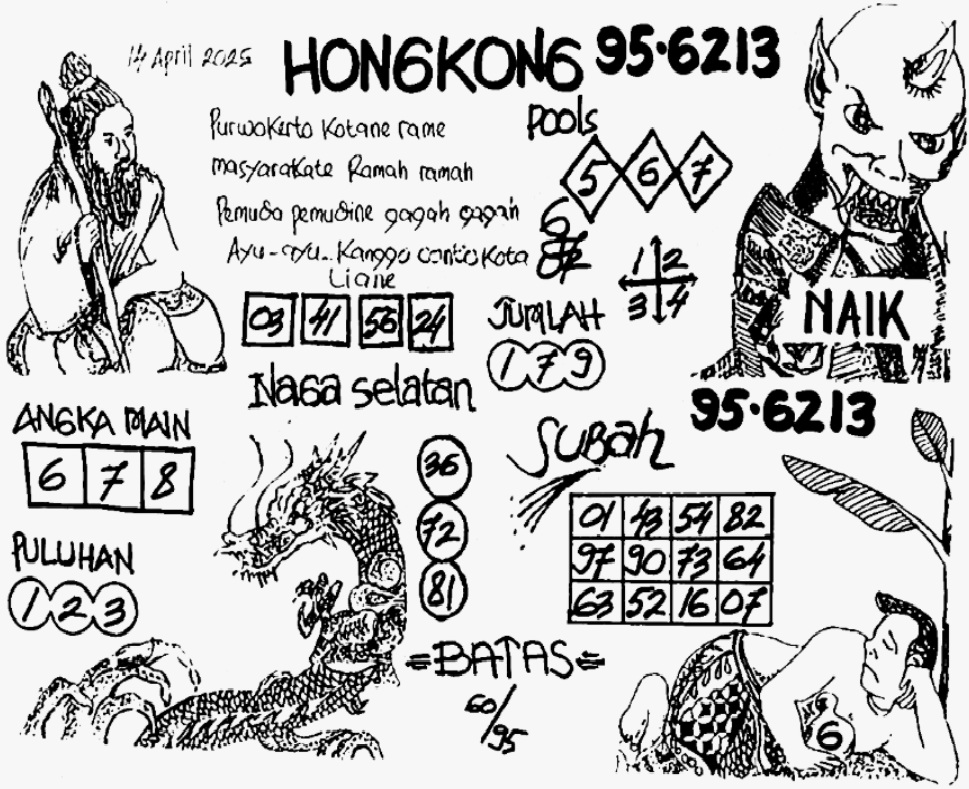 14 April 2025
HONGKONG 95·6213
Pools
Purwokerto Kotane rame
masyarakate Ramah ramah
Pemuda pemudine gagah gagah
Ayu-ayu.. Kanggo conto Kota
Liane
5 6 7
6
1 2
3 4
NAIK
03 41 56 24
JUMLAH
1 7 9
Naga selatan
95·6213
ANGKA MAIN
6 7 8
SUBAH
36
72
81
01 43 54 82
97 90 73 64
63 52 16 07
PULUHAN
1 2 3
=BATAS=
60/95
6